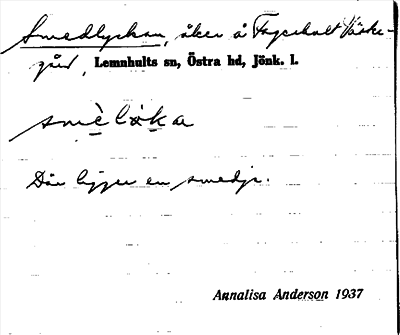 Smedlyckan, åker å Fagerhult Väster-
gård, Lemnhults sn, Östra hd, Jönk. l.
smèlơka
Där ligger en smedja.
Annalisa Anderson 1937